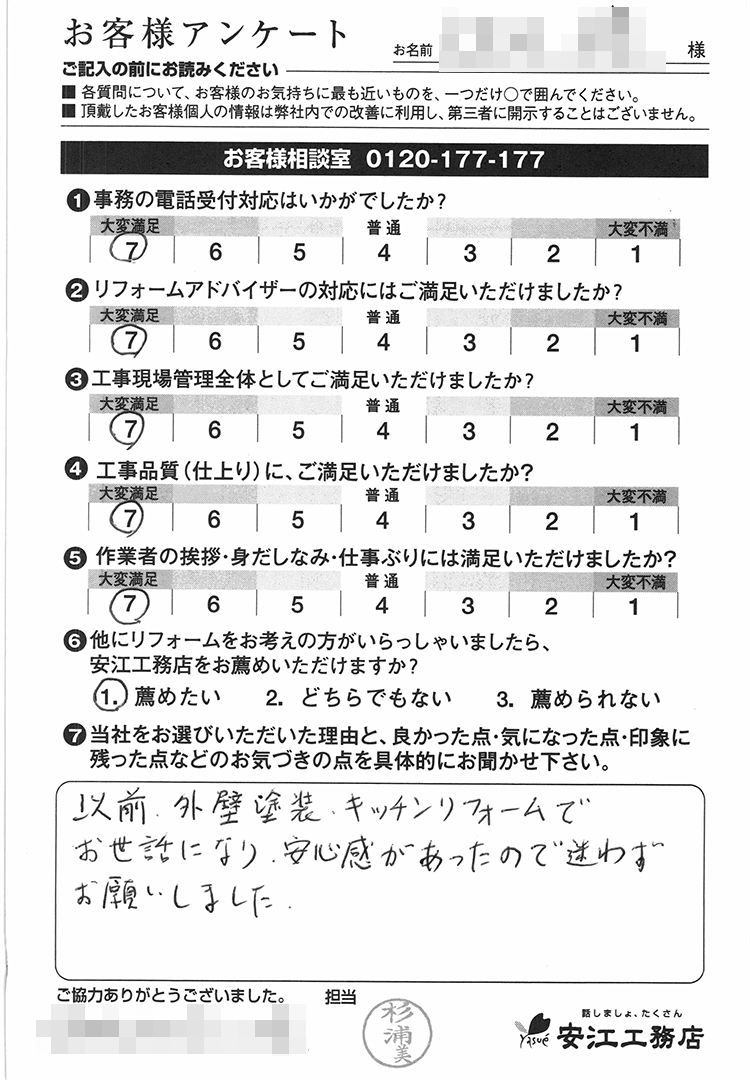 お客様アンケート
お名前 様
ご記入の前にお読みください
■ 各質問について、お客様のお気持ちに最も近いものを、一つだけ○で囲んでください。
■ 頂戴したお客様個人の情報は弊社内での改善に利用し、第三者に開示することはございません。
お客様相談室 0120-177-177
❶事務の電話受付対応はいかがでしたか?
大変満足 普通 大変不満
7 6 5 4 3 2 1
❷リフォームアドバイザーの対応にはご満足いただけましたか?
大変満足 普通 大変不満
7 6 5 4 3 2 1
❸工事現場管理全体としてご満足いただけましたか?
大変満足 普通 大変不満
7 6 5 4 3 2 1
❹工事品質(仕上り)に、ご満足いただけましたか?
大変満足 普通 大変不満
7 6 5 4 3 2 1
❺作業者の挨拶・身だしなみ・仕事ぶりには満足いただけましたか?
大変満足 普通 大変不満
7 6 5 4 3 2 1
❻他にリフォームをお考えの方がいらっしゃいましたら、
安江工務店をお薦めいただけますか?
1. 薦めたい 2. どちらでもない 3. 薦められない
❼当社をお選びいただいた理由と、良かった点・気になった点・印象に
残った点などのお気づきの点を具体的にお聞かせ下さい。
以前、外壁塗装、キッチンリフォームで
お世話になり、安心感があったので迷わず
お願いしました.
ご協力ありがとうございました。 担当
杉浦美
話しましょ、たくさん
Yasué 安江工務店